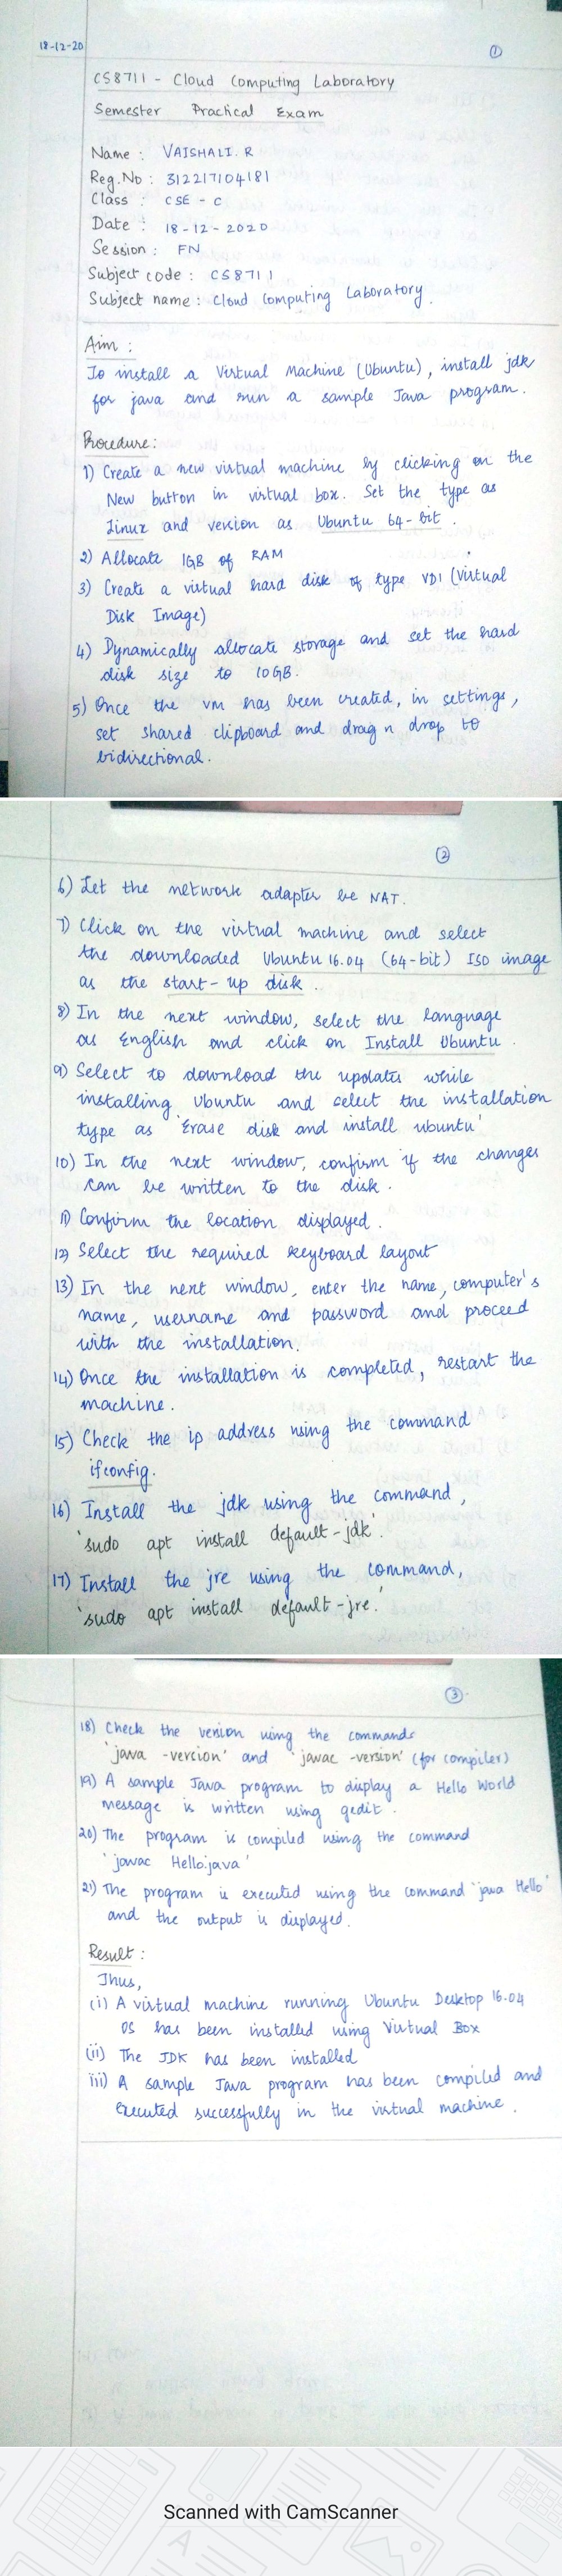 18-12-20
1
CS8711 - Cloud Computing Laboratory
Semester Practical Exam
Name : VAISHALI. R
Reg.No : 312217104181
Class : CSE - C
Date : 18-12-2020
Session : FN
Subject code : CS8711
Subject name : Cloud Computing Laboratory.
Aim :
To install a Virtual Machine (Ubuntu), install jdk
for java and run a sample Java program.
Procedure :
1) Create a new virtual machine by clicking on the
New button in virtual box. Set the type as
Linux and version as Ubuntu 64-bit.
2) Allocate 1GB of RAM
3) Create a virtual hard disk of type VDI (Virtual
Disk Image)
4) Dynamically allocate storage and set the hard
disk size to 10GB.
5) Once the VM has been created, in settings,
set shared clipboard and drag n drop to
bidirectional.
2
6) Let the network adapter be NAT.
7) Click on the virtual machine and select
the downloaded Ubuntu 16.04 (64-bit) ISO image
as the start-up disk.
8) In the next window, select the language
as English and click on Install Ubuntu.
9) Select to download the updates while
installing Ubuntu and select the installation
type as 'Erase disk and install ubuntu'
10) In the next window, confirm if the changes
can be written to the disk.
11) Confirm the location displayed.
12) Select the required keyboard layout
13) In the next window, enter the name, computer's
name, username and password and proceed
with the installation.
14) Once the installation is completed, restart the
machine.
15) Check the ip address using the command
ifconfig.
16) Install the jdk using the command,
'sudo apt install default-jdk'.
17) Install the jre using the command,
'sudo apt install default-jre.'
3
18) Check the version using the commands
'java -version' and 'javac -version' (for compiler)
19) A sample Java program to display a Hello World
message is written using gedit.
20) The program is compiled using the command
'javac Hello.java'
21) The program is executed using the command 'java Hello'
and the output is displayed.
Result :
Thus,
(i) A virtual machine running Ubuntu Desktop 16.04
OS has been installed using Virtual Box
(ii) The JDK has been installed
iii) A sample Java program has been compiled and
executed successfully in the virtual machine.
Scanned with CamScanner